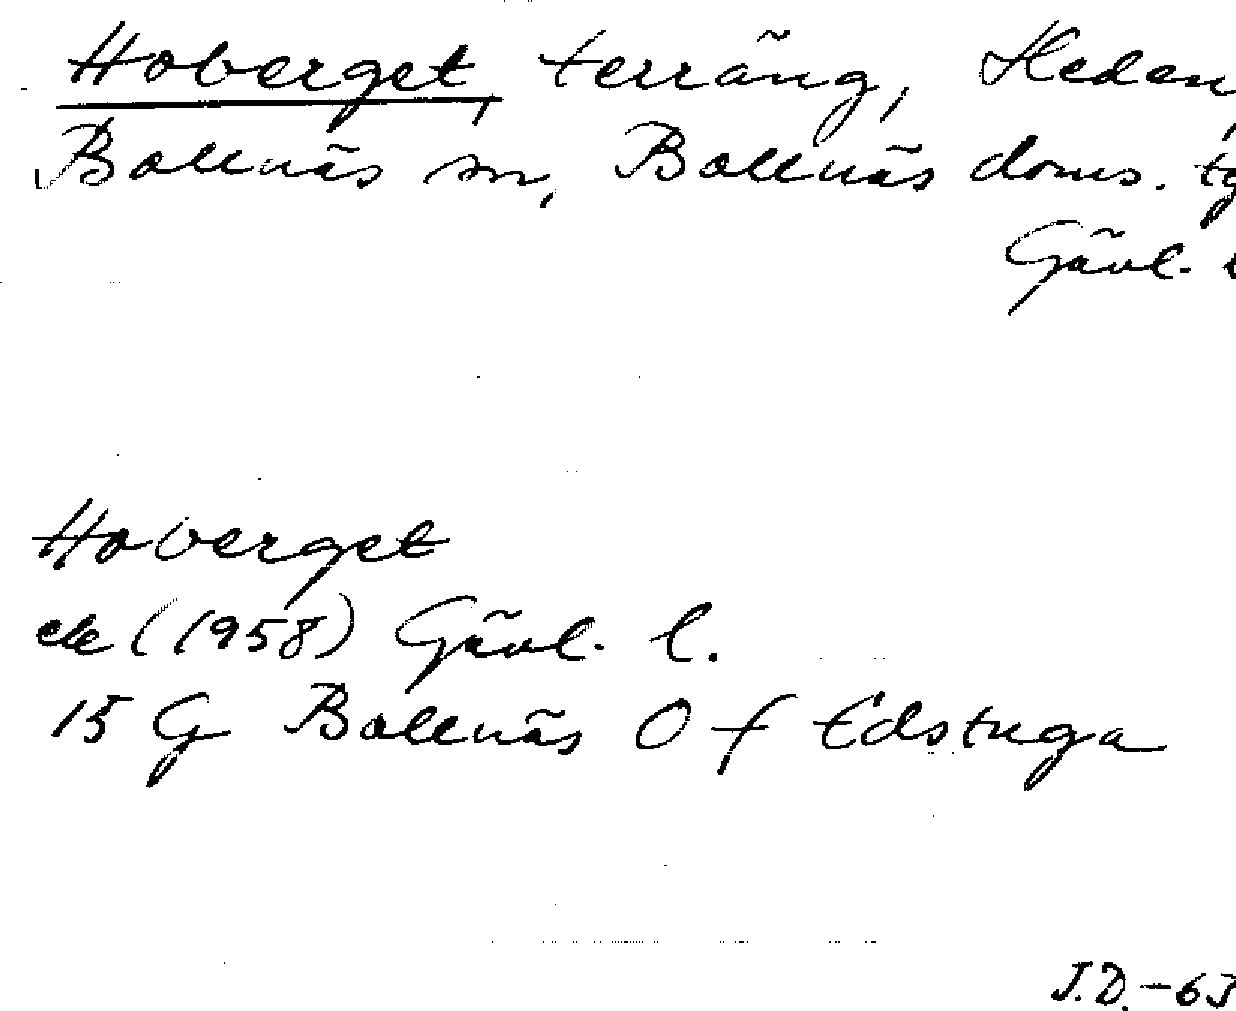 Hoberget, terräng, Heden,
Bollnäs sn, Bollnäs doms. tg
Gävl.
Hoberget
ek (1958) Gävl. l.
15 G Bollnäs O f Edstuga
J.D.-63